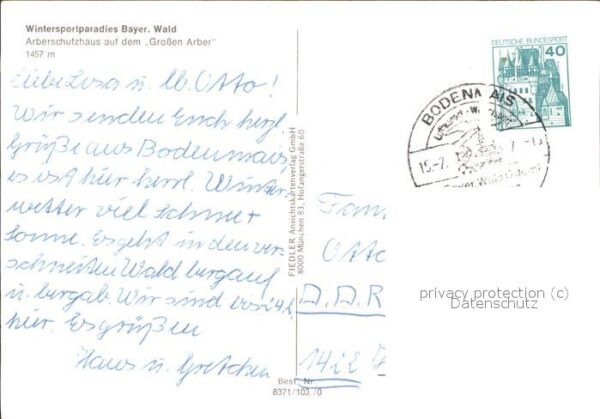 Wintersportparadies Bayer. Wald
Arberschutzhaus auf dem „Großen Arber"
1457 m
Liebe Lisa u. lb. Otto!
Wir senden Euch herzl.
Grüße aus Bodenmais
es ist hier herrl. Winter
wetter viel Schnee u
Sonne. Es geht in den ver
schneiten Wald bergauf
u. bergab. Wir sind bis 24.2.
hier. Es grüßen
Hans u. Gretchen
FIEDLER Ansichtskartenverlag GmbH
8000 München 83, Hofangerstraße 60
Best. Nr
8371/103 /0
DEUTSCHE BUNDESPOST
40
BODENMAIS
15.-2.
Bayer. Wald
Fam
Otto
D.D.R
privacy protection (c)
Datenschutz